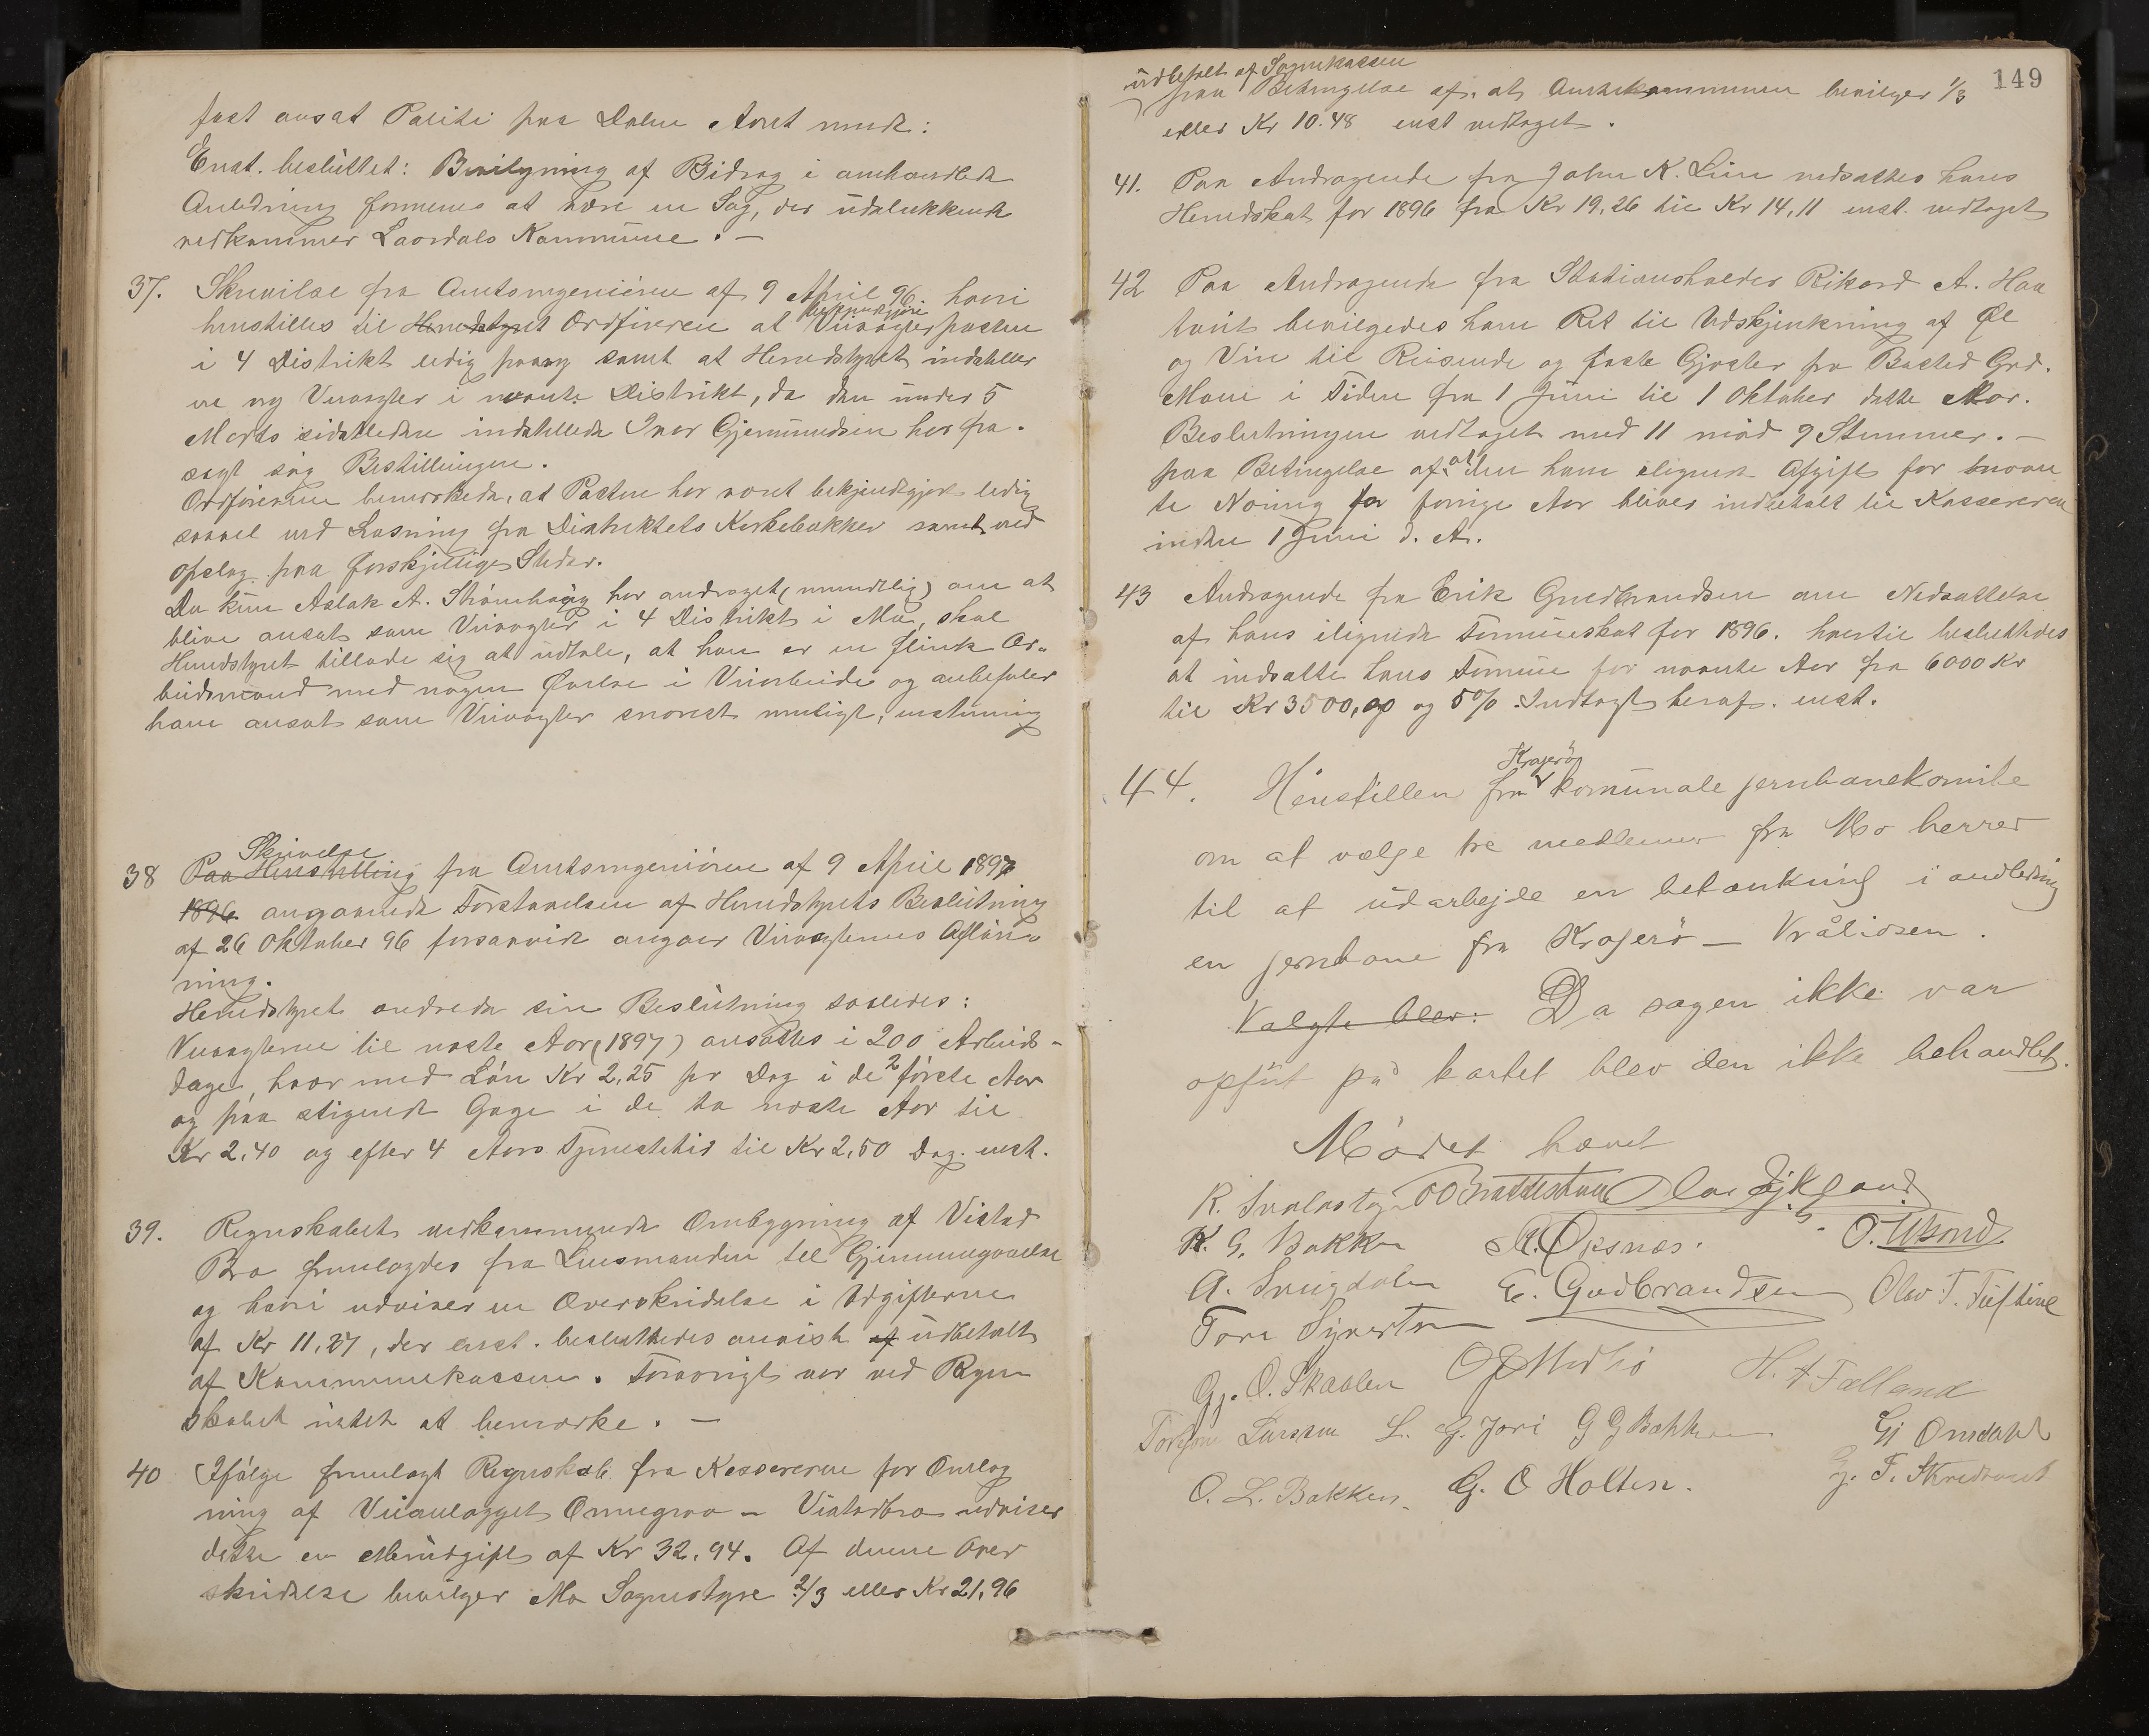 fast ansat Politi paa Dalen Aaret rundt:
Enst. besluttet: Bevilgning af Bidrag i omhandlede
Anledning formenes at være en Sag, der udelukkende
vedkommer Laardals Kommune. —
37. Skrivelse fra Amtsingeniøren af 9 April 96. hvori
henstilles til Herredstyret Ordføreren at bekjendtgjøre Veivogterposten
i 4 Distrikt ledig paany samt at Herredstyret indstiller
en ny Veivogter i nævnte Distrikt, da den under 5
Marts sidstleden indstillede Ivar Gjermundsen har fra-
sagt sig Bestillingen.
Ordføreren bemærkede, at Posten har været bekjendtgjort ledig
saavel ved Læsning fra Distriktets Kirkebakker samt ved
Opslag paa forskjellige Steder.
Da kun Aslak A. Strømhaug har andraget (mundtlig) om at
blive ansat som Veivogter i 4 Distrikt i Mo, skal
Herredstyret tillade sig at udtale, at han er en flink Ar-
beidsmand med nogen Øvelse i Veiarbeide og anbefaler
ham ansat som Veivogter snarest muligt, enstemmig
38 Paa Henstilling Skrivelse fra Amtsingeniøren af 9 April 1897
1896 angaaende Forstaaelsen af Herredstyrets Beslutning
af 26 Oktober 96 forsaavidt angaar Veivogternes Afløn-
ning.
Herredstyret endrede sin Beslutning saaledes:
Veivogterne til næste Aar (1897) ansættes i 200 Arbeids-
dage, hvor med Løn Kr 2,25 pr Dag i de 2 første Aar
og paa stigende Gage i de to næste Aar til
Kr 2,40 og efter 4 Aars Tjenestetid til Kr 2,50 Dag. enst.
39. Regnskabet vedkommende Ombygning af Vistad
Bro fremlagdes fra Lensmanden til Gjennemgaaelse
og hvori udviser en Overskridelse i Udgifterne
af Kr 11,37, der enst. besluttedes anvist af udbetalt
af Kommunekassen. Forøvrigt var ved Regn
skabet intet at bemærke. —
40 Ifølge fremlagt Regnskab fra Kassereren for Omlæg
ning af Veianlægget Omnegraa – Vistadbro udviser
dette en Merudgift af Kr 32,94. Af denne Over
skridelse bevilger Mo Sognestyre 2/3 eller Kr 21,96
149
udbetalt af Sognekassen
paa Betingelse af, at Amtskommunen bevilger 1/3
eller Kr 10.48 enst vedtaget.
41. Paa Andragende fra John K. Lien nedsattes hans
Herredskat for 1896 fra Kr 19,26 til Kr 14,11 enst. vedtaget
42 Paa Andragende fra Stationsholder Rikard A. Haa
tveit bevilgedes ham Ret til Udskjenkning af Øl
og Vin til Reisende og faste Gjæster fra Bosted Grd.
Moen i Tiden fra 1 Juni til 1 Oktober dette Aar.
Beslutningen vedtaget med 11 mod 9 Stemmer. —
paa Betingelse af at den ham ilignede Afgift for nævn
te Næring for forrige Aar bliver indbetalt til Kassereren
inden 1 Juni d. A.
43 Andragende fra Erik Gudbrandsen om Nedsættelse
af hans ilignede Formueskat for 1896. hvortil besluttedes
at nedsætte hans Formue for nævnte Aar fra 6000 Kr
til Kr 3500,00 og 5% Indtægt heraf. enst.
44. Henstillen fra Kragerö komunale jernbanekomite
om at vælge tre medlemmer fra Mo herred
til at udarbejde en betænkning i andledning
en jernbane fra Kragerö — Vråliosen.
Valgte blev: Da sagen ikke var
opført på kartet blev den ikke behandlet.
Mödet hævet
R. Svalastog O O Brattestaae Olav Eikland
K. G. Bakken A. Øksnæs. O. Ukand.
A. Smigdalen E. Gudbrandsen Olav T. Tveften
Tore Sjverts
Gj. O. Skaalen O G Medbö H. A Falland
Larsen L. G. Jore G G Bakken Gj Omdahl
O. L. Bakken. G. O Holten. G. T. Skredtveit